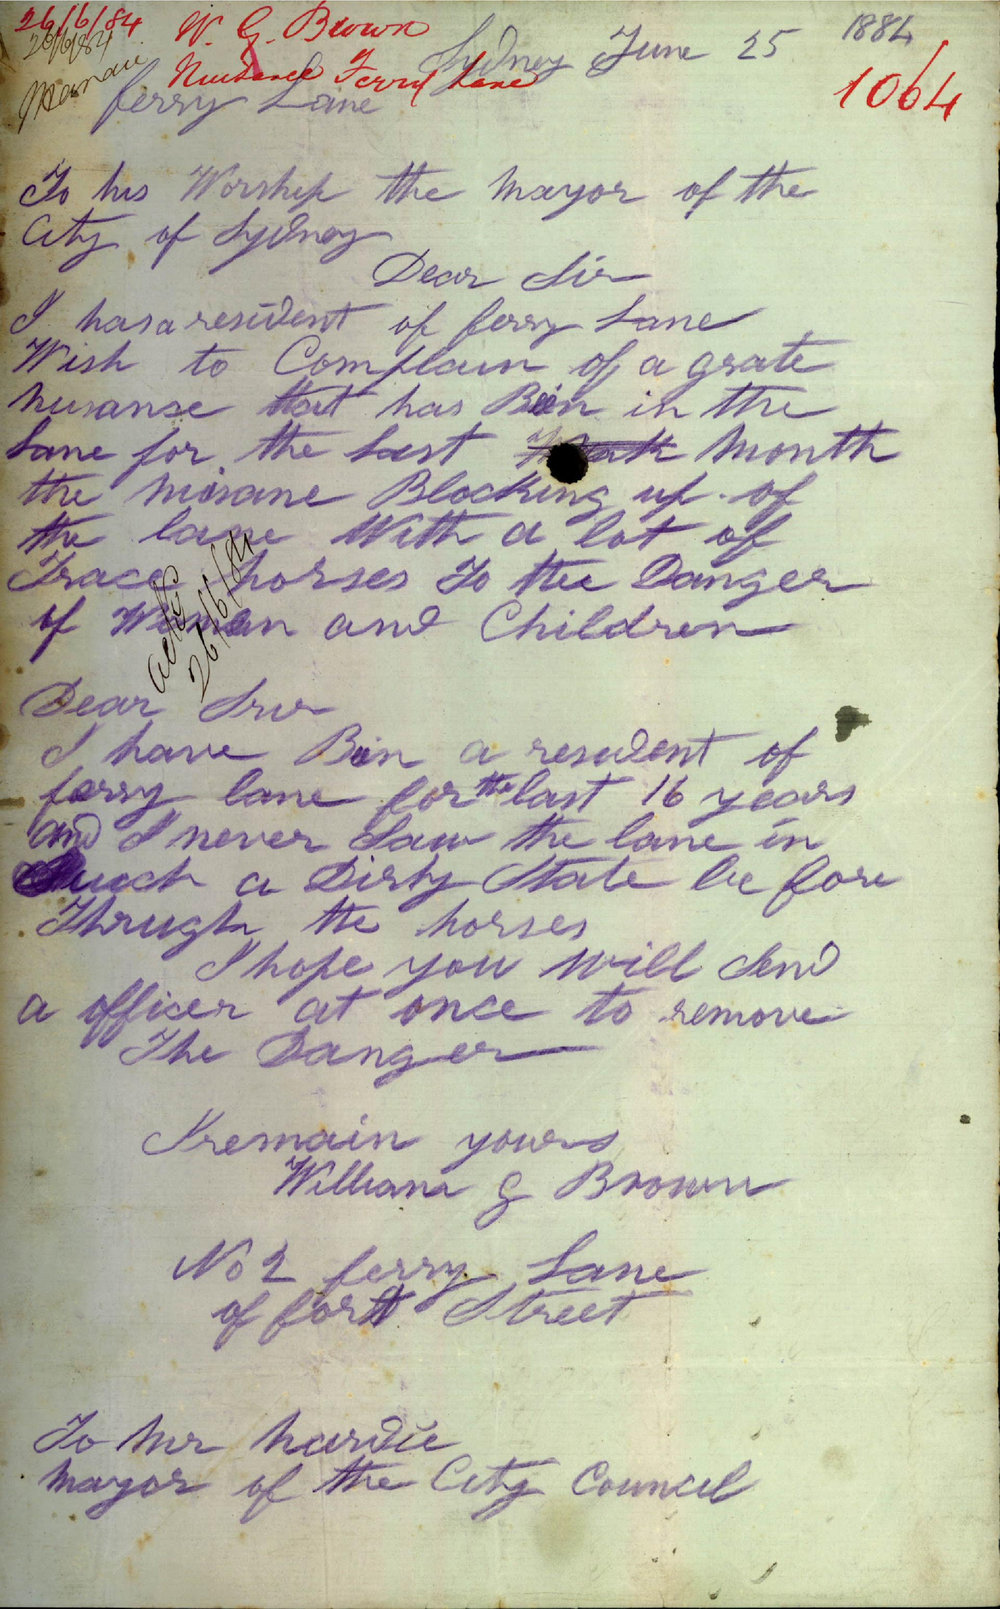 26/6/84. W. G. Brown
Nuisance Ferry Lane
26/6/84
1064
Sydney June 25 1884
ferry Lane
To his Worship the Mayor of the
City of Sydney
Dear Sir
I has a resident of ferry Lane
Wish to Complain of a grate
nusanse that has Bein in the
Lane for the Last Month
the nusane Blocking up of
the lane With a lot of
Trace horses To the Danger
of Weman and Children
26/6/84
Dear Sir
I have Bein a resident of
ferry lane for the last 16 years
and I never Saw the lane in
Such a Dirty State be fore
Thrugh the horses
I hope you will Send
a officer at once to remove
The Danger
I remain yours
William G Brown
No 2 ferry Lane
of fort Street
To Mr hardie
Mayor of the City Council